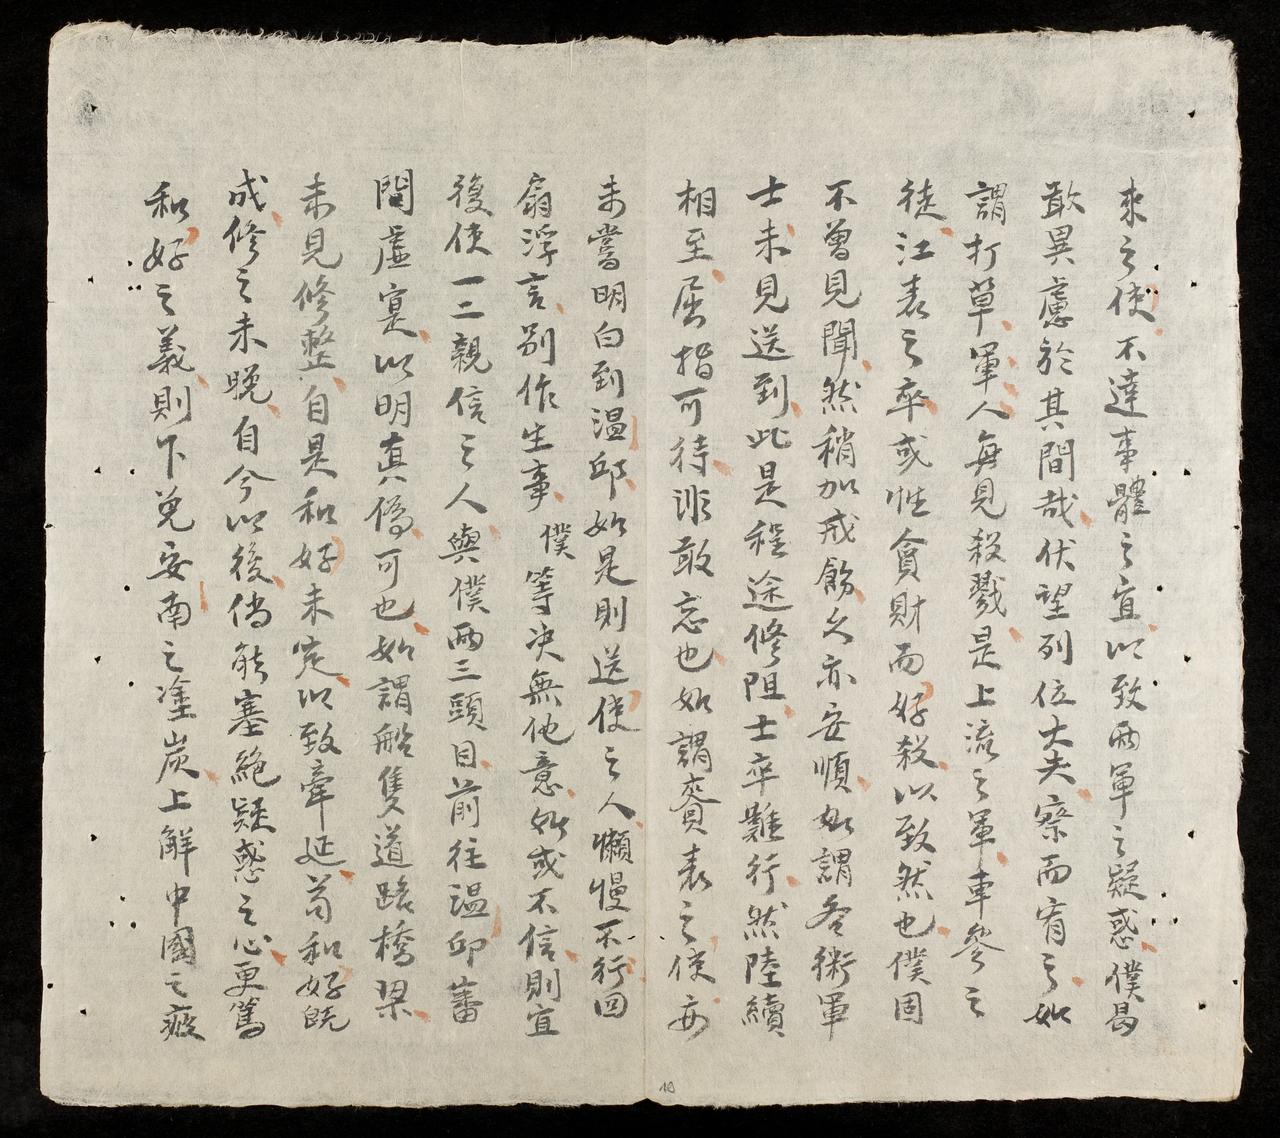 來之使不達事體之宜以致兩軍之疑惑僕曷
敢異慮於其間哉伏望列位大夫察而宥之如
謂打草軍人每見殺戮是上流之軍車參之
徒江表之卒或性貪財而好殺以致然也僕固
不曾見聞然稍加戒飭久亦安順如謂各衛軍
士未見送到此是程途修阻士卒難行然陸續
相至屈指可待非敢忘也如謂賫表之使
未嘗明白到溫邱如是則送使之人懶慢不行回
扇浮言別作生事僕等決無他意如或不信則宜
後使一二親信之人與僕兩三頭目前往溫邱審
問虛寔以明真偽可也如謂船隻道路橋梁
未見修整自是和好未定以致牽延苟和好既
成修之未晚自今以後倘能塞絕疑惑之心更篤
和好之義則下免安南之塗炭上解中國之疲
10